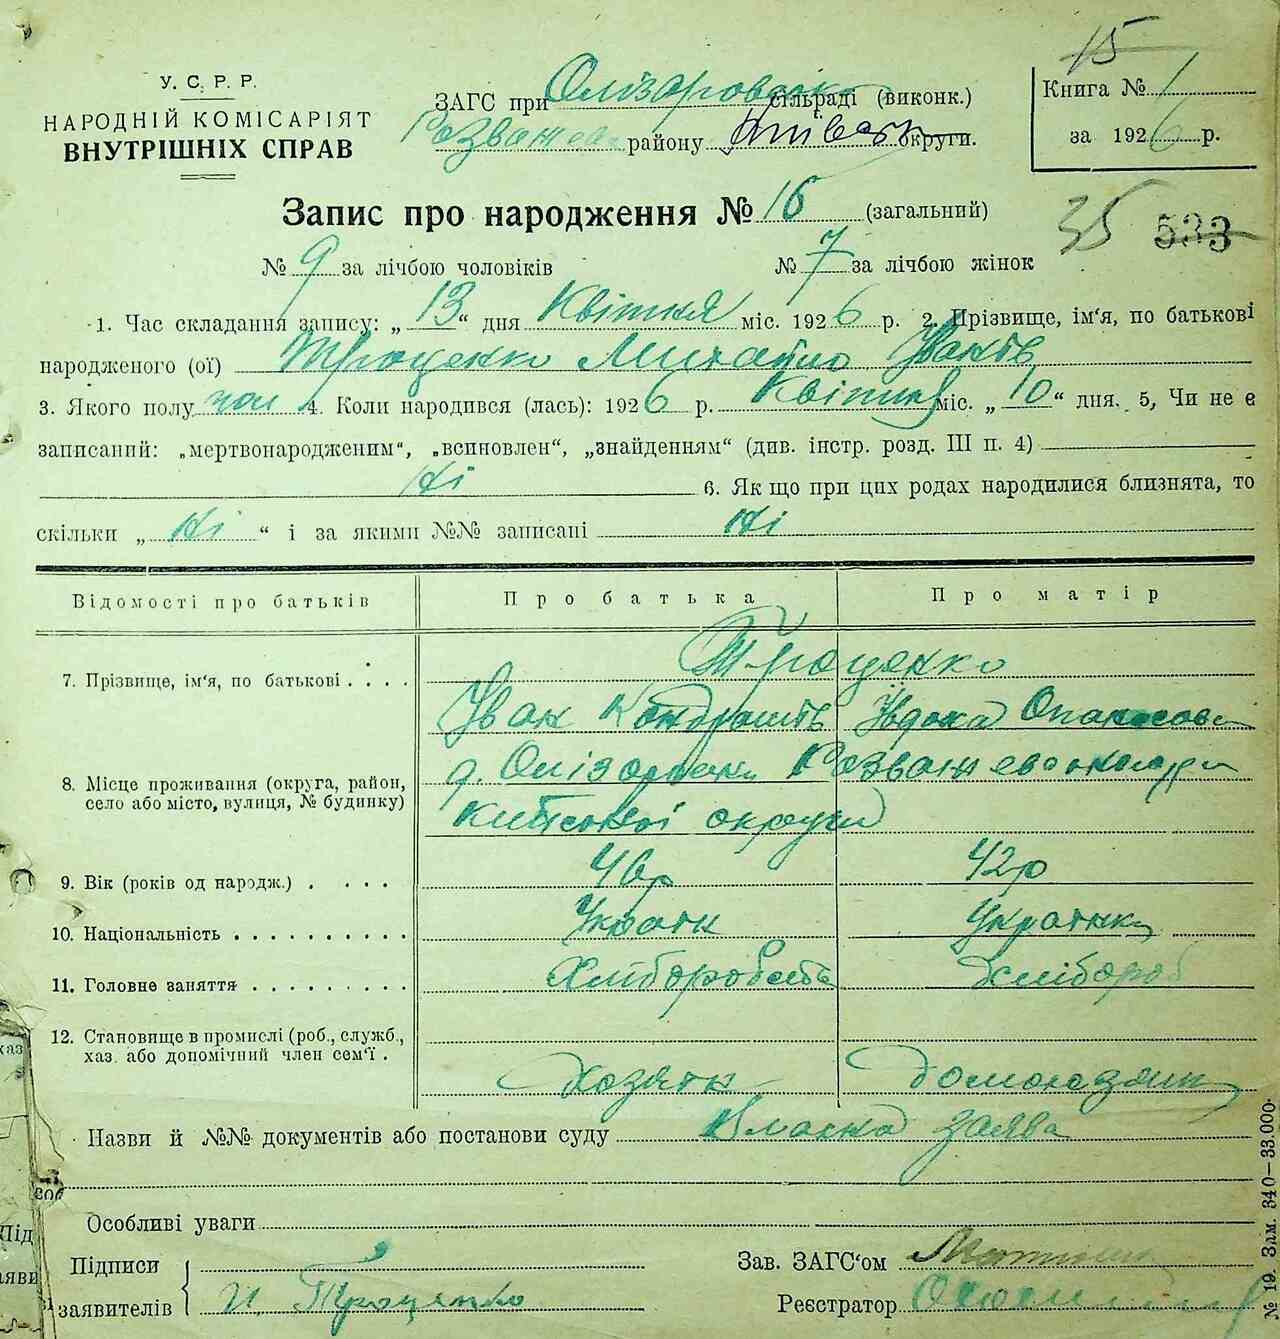 15
У. С. Р. Р.
НАРОДНІЙ КОМІСАРІЯТ
ВНУТРІШНІХ СПРАВ
ЗАГС при сільраді (виконк.)
району округи.
Книга № 1
за 1926 р.
Запис про народження № 16 (загальний)
35 533
№ 9 за лічбою чоловіків № 7 за лічбою жінок
1. Час складання запису: „ 13 “ дня Квітня міс. 1926 р. 2. Прізвище, ім‘я, по батькові
народженого (ої) Троценко Михайло Іванів
3. Якого полу чол 4. Коли народився (лась): 1926 р. Квітня міс. „ 10 “ дня. 5, Чи не є
записаний: „мертвонародженим“, „всиновлен“, „знайденям“ (див. інстр. розд. III п. 4)
Ні 6. Як що при цих родах народилися близнята, то
скільки „ Ні “ і за якими №№ записані Ні
Відомості про батьків Про батька Про матір
Троценко
7. Прізвище, ім‘я, по батькові . . . .
Іван Євдокя
8. Місце проживання (округа, район,
село або місто, вулиця, № будинку)
округи
9. Вік (років од народж.) . . . . 46р 42р
10. Національність . . . . . . . . . . Українка
11. Головне заняття . . . . . . . . . Хлібороб
12. Становище в промислі (роб., служб.,
хаз. або допомічний член сем‘ї .
Хазяїн
Назви й №№ документів або постанови суду Власна заява
Особливі уваги
Підписи
заявителів И. Троценко
Зав. ЗАГС‘ом
Реєстратор
№ 19. Злм. 340—33.000.